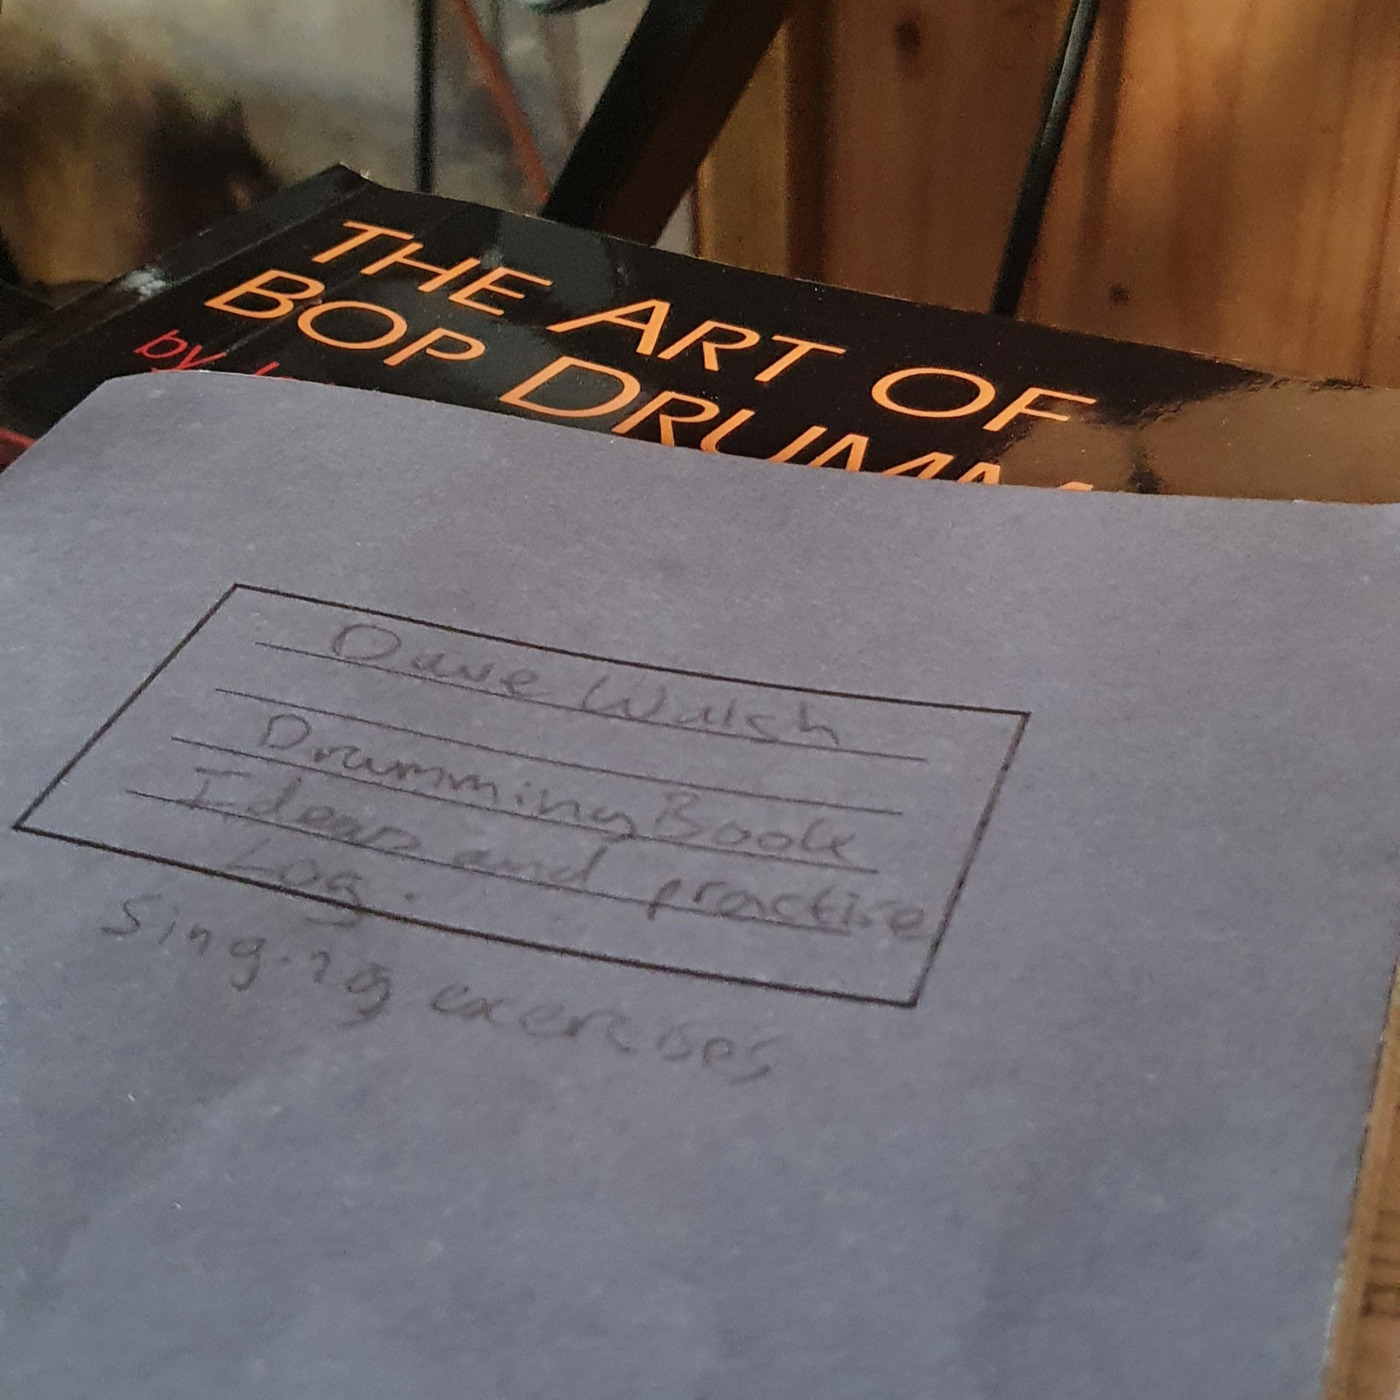 THE ART OF
BOP DRUMM
by
Dave Walsh
Drumming Book
Ideas and practice
Log.
Singing exercises